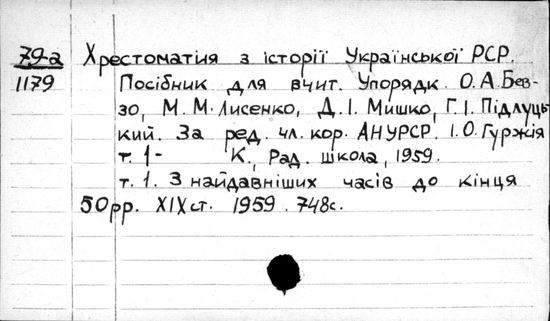 79-а Хрестоматия з історії Української РСР.
1179 Посібник для вчит. Упорядк. О.А.Бев-
зо, М.М.Лисенко, Д.І.Мишко, Г.І.Підлуць-
кий. За ред. чл. кор. АН УРСР. І.О.Гуржія
т. 1- К., Рад. школа, 1959.
т. 1. З найдавніших часів до кінця
50рр. XIX ст. 1959. 748с.